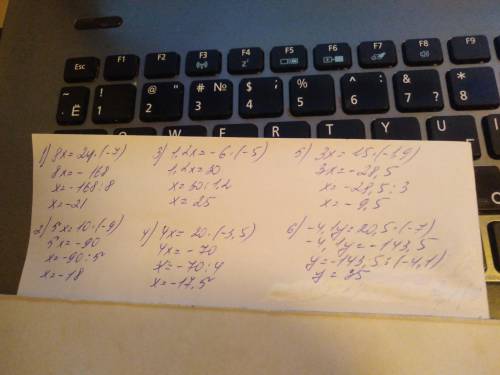 Esc F1 F2 F3 F4 F5 F6 F7 F8 F9
~ Ё ! 1 @ " 2 # № 3 $ ; 4 % 5 ^ : 6 & ? 7 * 8
Q W E R T Y U
1) 8x = 24·(-7)
8x = -168
x = -168:8
x = -21
2) 5x = 10·(-9)
5x = -90
x = -90:5
x = -18
3) 1,2x = -6·(-5)
1,2x = 30
x = 30:1,2
x = 25
4) 4x = 20·(-3,5)
4x = -70
x = -70:4
x = -17,5
5) 3x = 15·(-1,9)
3x = -28,5
x = -28,5:3
x = -9,5
6) -4,1y = 20,5·(-7)
-4,1y = -143,5
y = -143,5:(-4,1)
y = 35